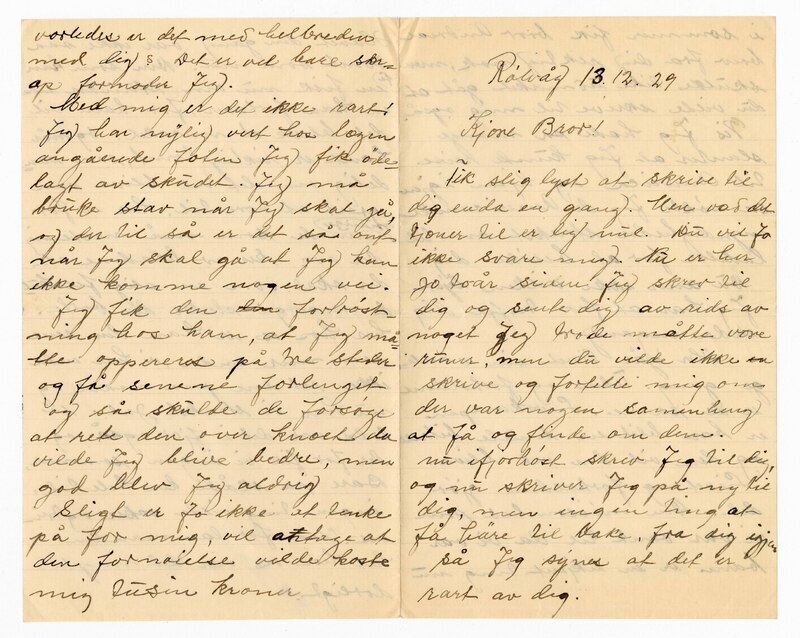 Rølvåg 13.12.29
Kjøre Bror!
Fik slig lyst at skrive til
dig enda en gang. Men vad det
tjener til er lig nul. Du vil jo
ikke svare mig. Nu er her
jo toår siden Jeg skrev til
dig og sente dig av rids av
noget Jeg trode måtte vore
runer, men du vilde ikke
skrive og fortelle mig om
der var nogen samenheng
at få og finde om dem.
nu ifjorhøst skrev Jeg til dig,
og nu skriver Jeg på ny til
dig, men ingen ting at
få høre til bake, fra dig igjen
så Jeg synes at det er
rart av dig.
vorledes er det med helbreden
med dig? Det er vel bare skr-
ap formoder Jeg.
Med mig er det ikke rart!
Jeg har nylig vert hos lægen
angåerede foten Jeg fik øde-
lagt av skudet. Jeg må
bruke stav når Jeg skal gå,
og der til så er det så ont
når Jeg skal gå at Jeg kan
ikke komme nogen vei.
Jeg fik den fortrøst-
ning hos ham, at Jeg må-
tte oppereres på tre steder
og få senene forlenget
og så skulte de forsøge
at rete den over knæet da
vilde Jeg blive bedre, men
god blev Jeg aldrig
Sligt er jo ikke at tenke
på for mig vil antage at
den fornøielse vilde koste
mig tusin kroner